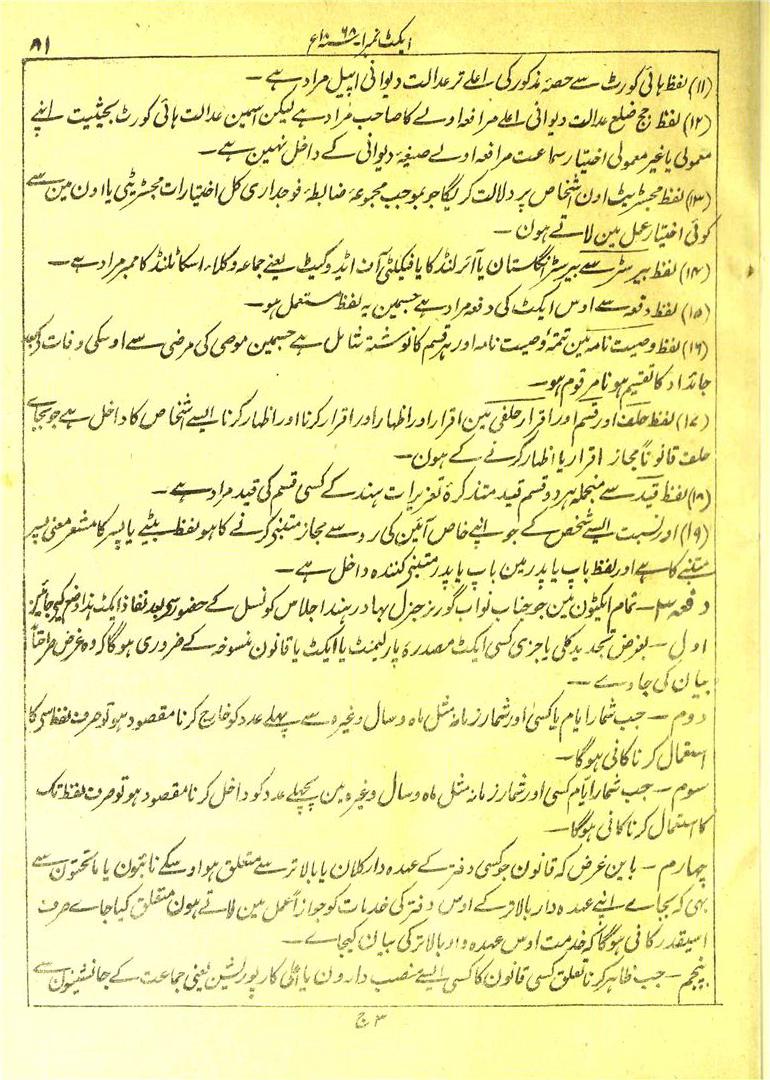 ایکٹ نمبر ۱ - ۱۸۶۸ء
۸۱
(۱۱) لفظ ہائی کورٹ سے حصۂ مذکور کی اعلے تر عدالت دیوانی اپیل مراد ہے —
(۱۲) لفظ جج ضلع عدالت دیوانی اعلے مرافعہ اولے کا صاحب مراد ہے لیکن اسمین عدالت ہائی کورٹ بحیثیت اپنے
معمولی یا غیر معمولی اختیار سماعت مرافعہ اولے صیغۂ دیوانی کے داخل نہین ہے —
(۱۳) لفظ مجسٹریٹ اون اشخاص پر دلالت کریگا جو بموجب مجموعۂ ضابطۂ فوجداری کل اختیارات مجسٹریٹی یا اون مین سے
کوئی اختیار عمل مین لاتے ہون —
(۱۴) لفظ بیرسٹر سے بیرسٹر انگلستان یا آئرلنڈ کا یا فیکلٹی آف اڈیوکیٹ یعنے جماعہ وکلاء اسکاٹلنڈ کا ممبر مراد ہے —
(۱۵) لفظ دفعہ سے اوس ایکٹ کی دفعہ مراد ہے جسمین یہ لفظ مستعمل ہو —
(۱۶) لفظ وصیت نامہ مین تتمۂ وصیت نامہ اور ہر قسم کا نوشتہ شامل ہے جسمین موصی کی مرضی سے اوسکی وفات کے بعد
جائداد کا تقسیم ہونا مرقوم ہو —
(۱۷) لفظ حلف اور قسم اور اقرار حلفی مین اقرار اور اظہار اور اقرار کرنا اور اظہار کرنا ایسے اشخاص کا داخل ہے جو بجاے
حلف قانوناً مجاز اقرار یا اظہار کرنے کے ہون —
(۱۸) لفظ قید سے منجملہ ہر دو قسم قید متذکرۂ تعزیرات ہند کے کسی قسم کی قید مراد ہے —
(۱۹) اور نسبت ایسے شخص کے جو اپنے خاص آئین کی رو سے مجاز متبنیٰ کرنے کا ہو لفظ بیٹے یا پسر کا مشعر معنی پسر
متبنے کا ہے اور لفظ باپ یا پدر مین باپ یا پدر متبنیٰ کنندہ داخل ہے —
دفعہ ۳ — تمام ایکٹون مین جو جناب نواب گورنر جنرل بہادر ہند اجلاس کونسل کے حضور سے بعد نفاذ ایکٹ ہذا وضع کیے جائین
اول — بغرض تجدید کلی یا جزی کسی ایکٹ مصدرہ پارلیمنٹ یا ایکٹ یا قانون منسوخہ کے ضروری ہوگا کہ وہ غرض صراحتاً
بیان کی جاوے —
دوم — جب شمار ایام یا کسی اور شمار زمانہ مثل ماہ و سال وغیرہ سے پہلے عدد کو خارج کرنا مقصود ہو تو صرف لفظ سے کا
استعمال کرنا کافی ہوگا —
سوم — جب شمار ایام کسی اور شمار زمانہ مثل ماہ و سال وغیرہ مین پچھلے عدد کو داخل کرنا مقصود ہو تو صرف لفظ تک
کا استعمال کرنا کافی ہوگا —
چہارم — باین غرض کہ قانون جو کسی دفتر کے عہدہ دار کلان یا بالاتر سے متعلق ہو اوسکے نائبون یا ماتحتون سے
بھی کہ بجاے اپنے عہدہ دار بالاتر کے اوس دفتر کی خدمات کو جوازاً عمل مین لاتے ہون متعلق کیا جاے صرف
اسیقدر کافی ہوگا کہ خدمت اوس عہدہ دار بالاتر کی بیان کیجاے —
پنجم — جب ظاہر کرنا تعلق کسی قانون کا کسی ایسے منصب دارون یا اعلی کارپورلیشن یعنی جماعت کے جانشینون سے
۳ ج